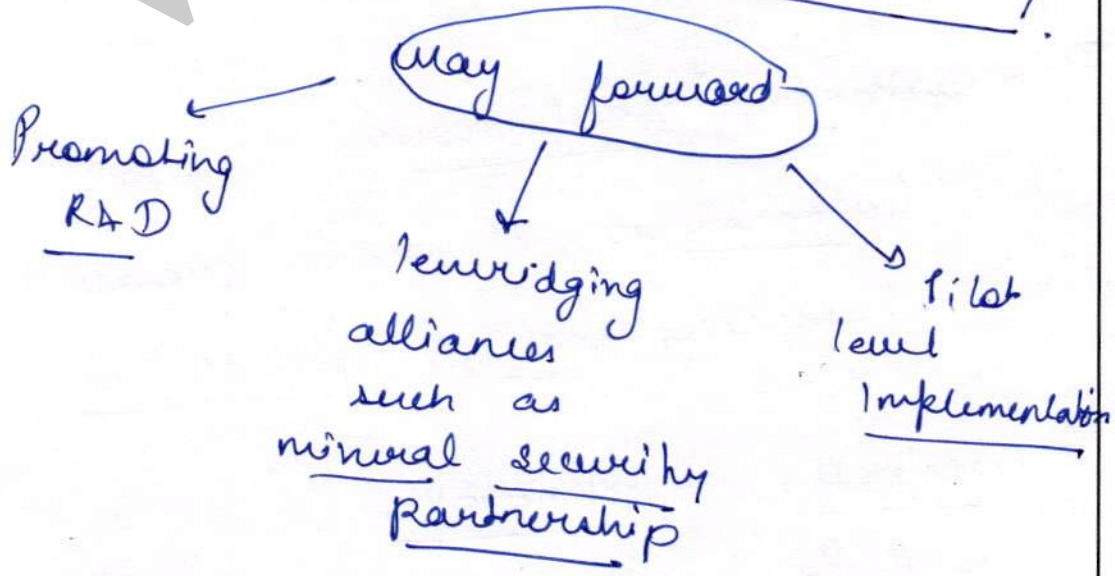 Way forward
Promoting
R&D
leveridging
alliances
such as
mineral security
partnership
Pilot
level
Implementation